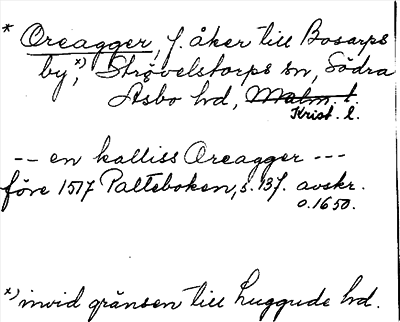 * Oreagger, f. åker till Bosarps
by,*) Strövelstorps sn, Södra
Åsbo hd, Malm. l.
Krist. l.
-- en kalliss Oreagger ---
före 1517 Palteboken, s. 137. avskr.
o. 1650.
*) invid gränsen till Luggude hd.